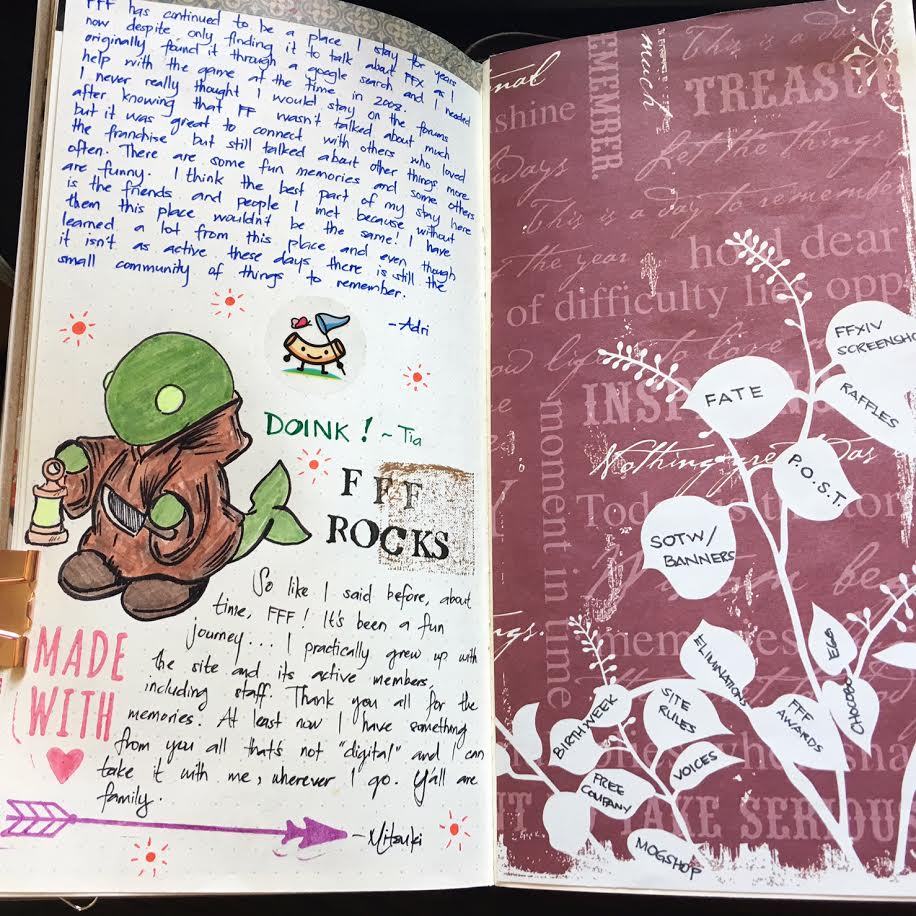 FFF has continued to be a place I stay for years
now despite only finding it to talk about FFX as I
originally found it through a google search and I needed
help with the game at the time in 2008.
I never really thought I would stay on the forums
after knowing that FF wasn't talked about much
but it was great to connect with others who loved
the franchise but still talked about other things more
often. There are some fun memories and some others
are funny. I think the best part of my stay here
is the friends and people I met because without
them this place wouldn't be the same! I have
learned a lot from this place and even though
it isn't as active these days there is still the
small community of things to remember.
-Adri
DOINK! ~Tia
FFF
ROCKS
So like I said before, about
time, FFF! It's been a fun
journey... I practically grew up with
the site and its active members,
including staff. Thank you all for the
memories. At least now I have something
from you all that's not "digital" and I can
take it with me, wherever I go. Y'all are
family.
-Mitsuki
MADE
WITH
This is a da
much
EMEMBER.
TREASU
shine
ways
Let the thing
This is a day to remembe
the year
hold dear
of difficulty lies opp
to love
INSP
moment in time
Nothing great was
Today is
be
memories
TAKE SERIOU
FFXIV
SCREENSHO
FATE
RAFFLES
P.O.S.T.
SOTW/
BANNERS
EGG
ELIMINATIONS
CHOCOBO
SITE
RULES
FFF
AWARDS
BIRTHWEEK
VOICES
FREE
COMPANY
MOGSHOP